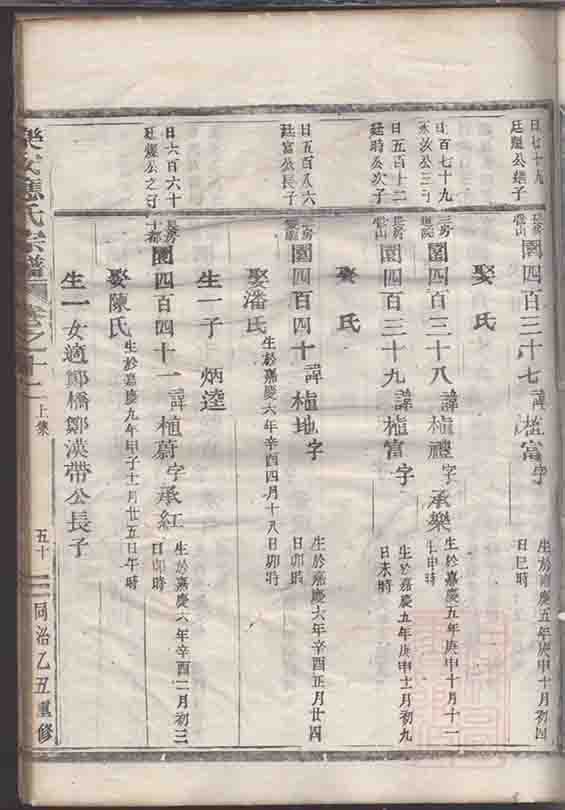 日七十九
廷公繼子
長房
圜四百三十七諱植富字
生於嘉慶五年庚申十月初四
日巳時
娶 氏
日百七十九
永汝公三子
三房
圜四百三十八諱植禮字承樂
生於嘉慶五年庚申十月十一
日申時
日五百十二
廷時公次子
長房
圜四百三十九諱植富字
生於嘉慶九年庚申十一月初九
日未時
娶 氏
日五百八六
廷富公長子
圜四百四十諱植地字
生於嘉慶六年辛酉正月廿四
日卯時
娶潘氏
生於嘉慶六年辛酉四月十八日卯時
生一子 炳逵
日六百六十
廷公之子
長房
十都
圜四百四十一諱植蔚字承紅
生於嘉慶六年辛酉二月初三
日卯時
娶陳氏
生於嘉慶九年甲子十一月廿五日午時
生一女適鄭橋鄭漢帶公長子
樂安應氏宗譜 卷之十二 上集 五十 同治乙丑重修